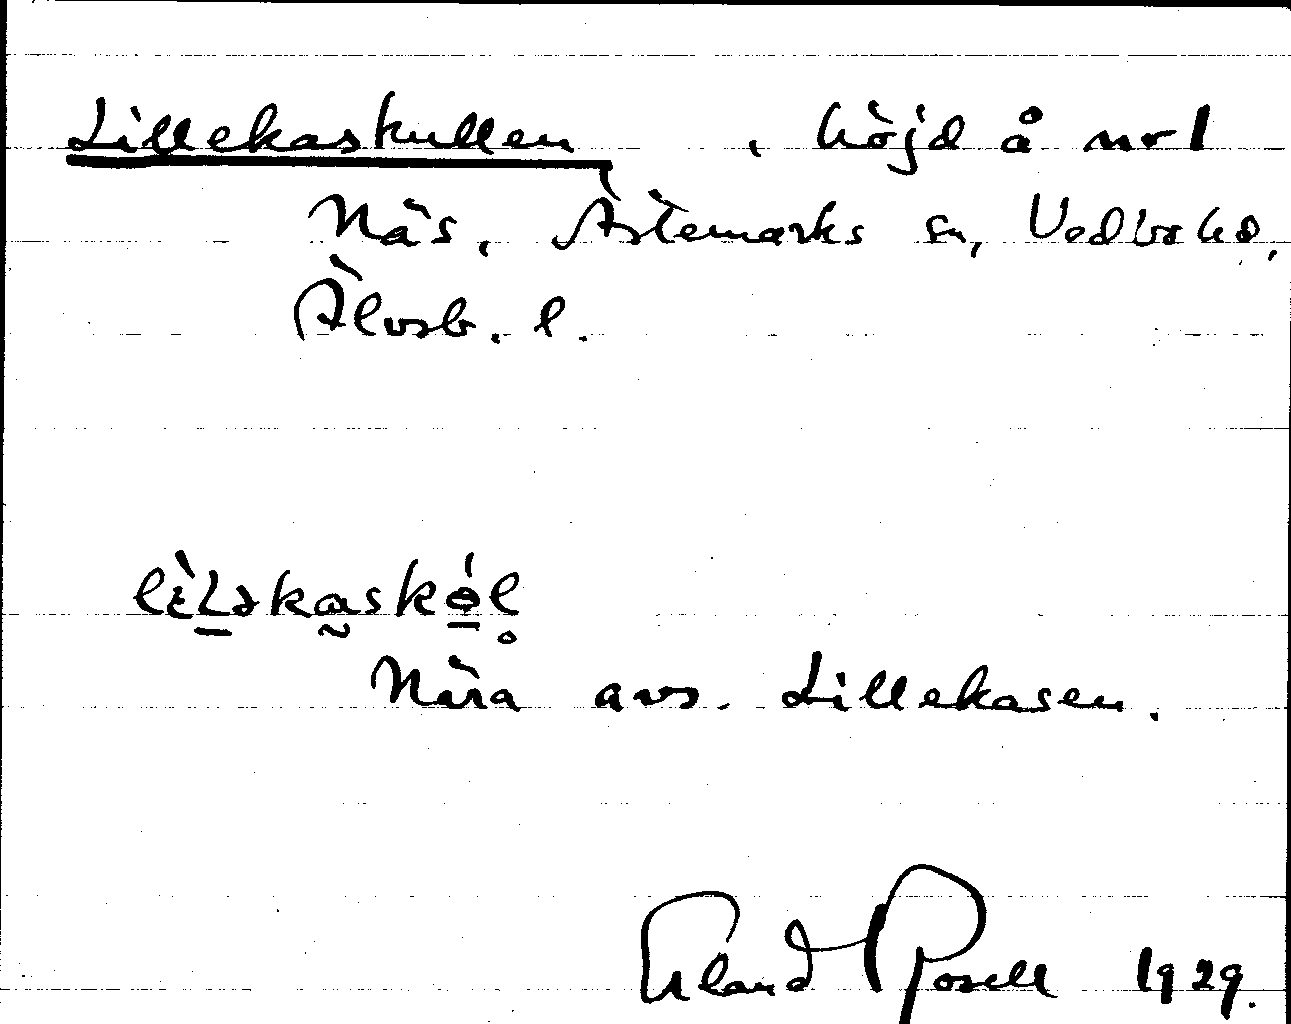 Lillekaskullen , höjd å nr 1
Näs, Ärtemarks sn, Vedbo hd,
Älvsb. l.
Nära avs. Lillekasen.
Erland Rosell 1929.